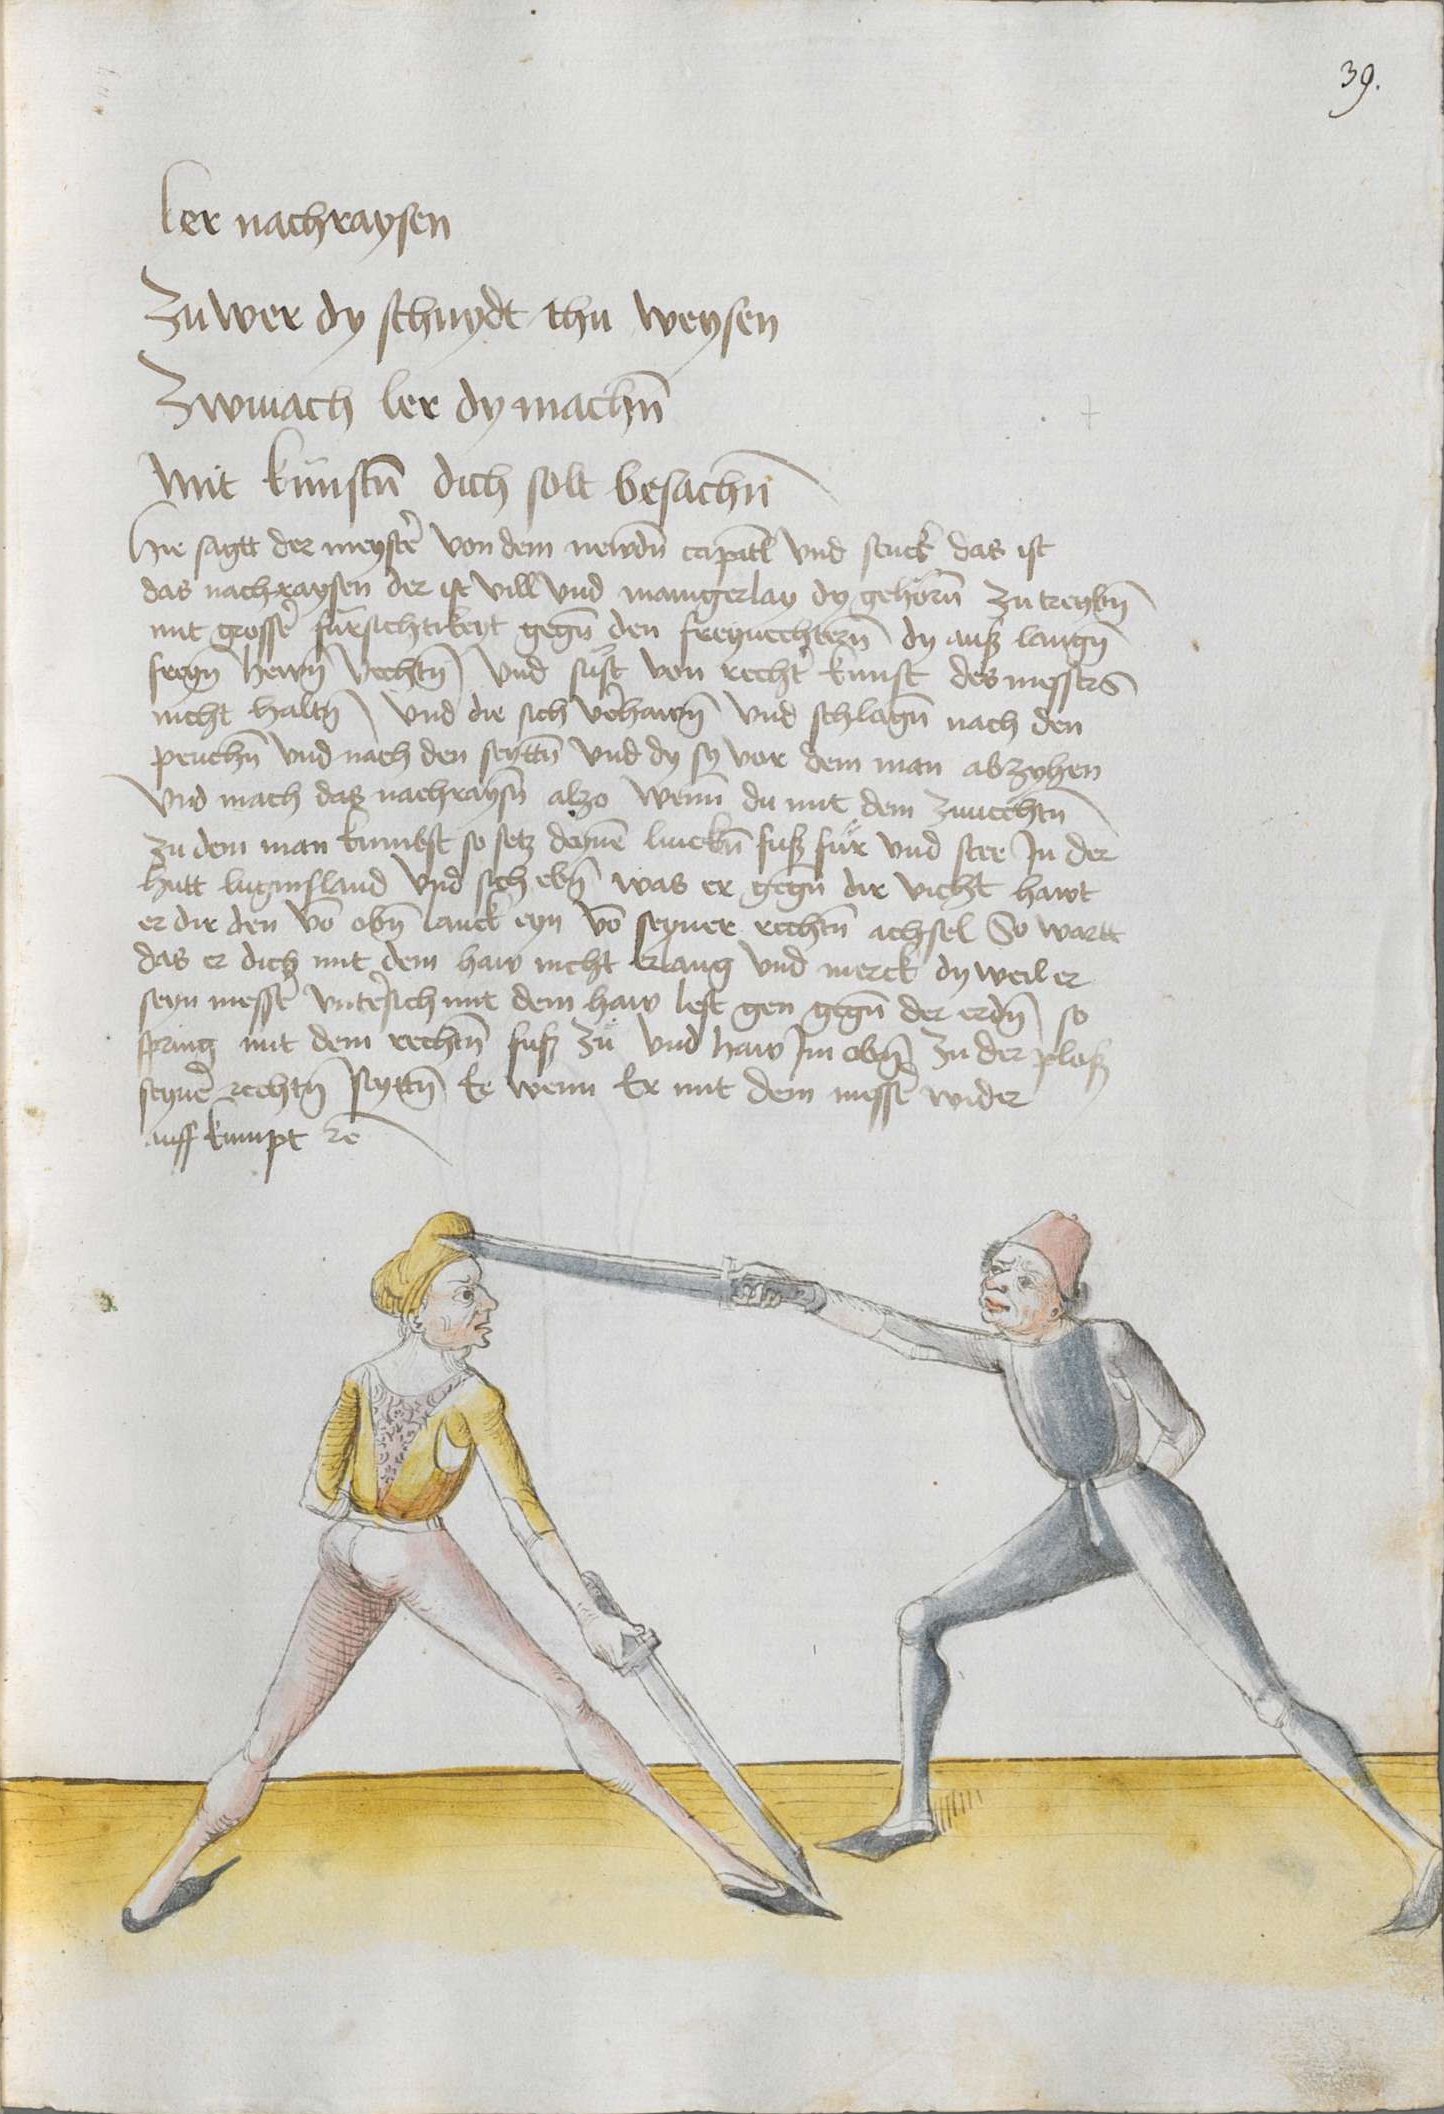 39.
ler nachraysen
Zuwer dy schnydt thu weysen
Zwinach ler dy machn̄
Mit kunstn̄ dich solt besachn̄
Hie sagtt der meystẽ von dem newdn̄ capittl vnd stuck das ist
das nachraysen der ist vill vnd mangerlay dy gehorn̄ zu treybn̄
mit grossẽ fursichtikeyt gegn̄ den freyuechtern̄ dy auß langn̄
freyn̄ hewn̄ vechtn̄ vnd sust von rechtẽ kunst des messers
nicht haltn̄ vnd die sich verhawn̄ vnd schlagn̄ nach den
peuchn̄ vnd nach den seyttn̄ vnd dy sy vor dem man abzyhen
Vnd mach das nachraysn̄ alzo wenn du mit dem zuuechtn̄
zu dem man kumbst so setz deynẽ lincken fuß für vnd stee In der
hutt luginsland vnd sich ebn̄ was er gegn̄ dir vicht hawt
er dir den vō obn̄ lanck eyn vō seyner rechtn̄ achsel So wartt
das er dich mit dem haw nicht erlang vnd merck dy weil er
seyn messẽ vntersich mit dem haw lest gen gegn̄ der erdn̄ so
spring mit dem rechtn̄ fuß zu vnd haw Im obn̄ zu der plöß
seynẽ rechtn̄ seyttn̄ Ee wenn Er mit dem messẽ wider
auff kumpt